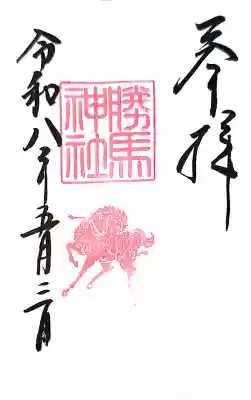 奉拝
勝馬神社
令和八年五月二日